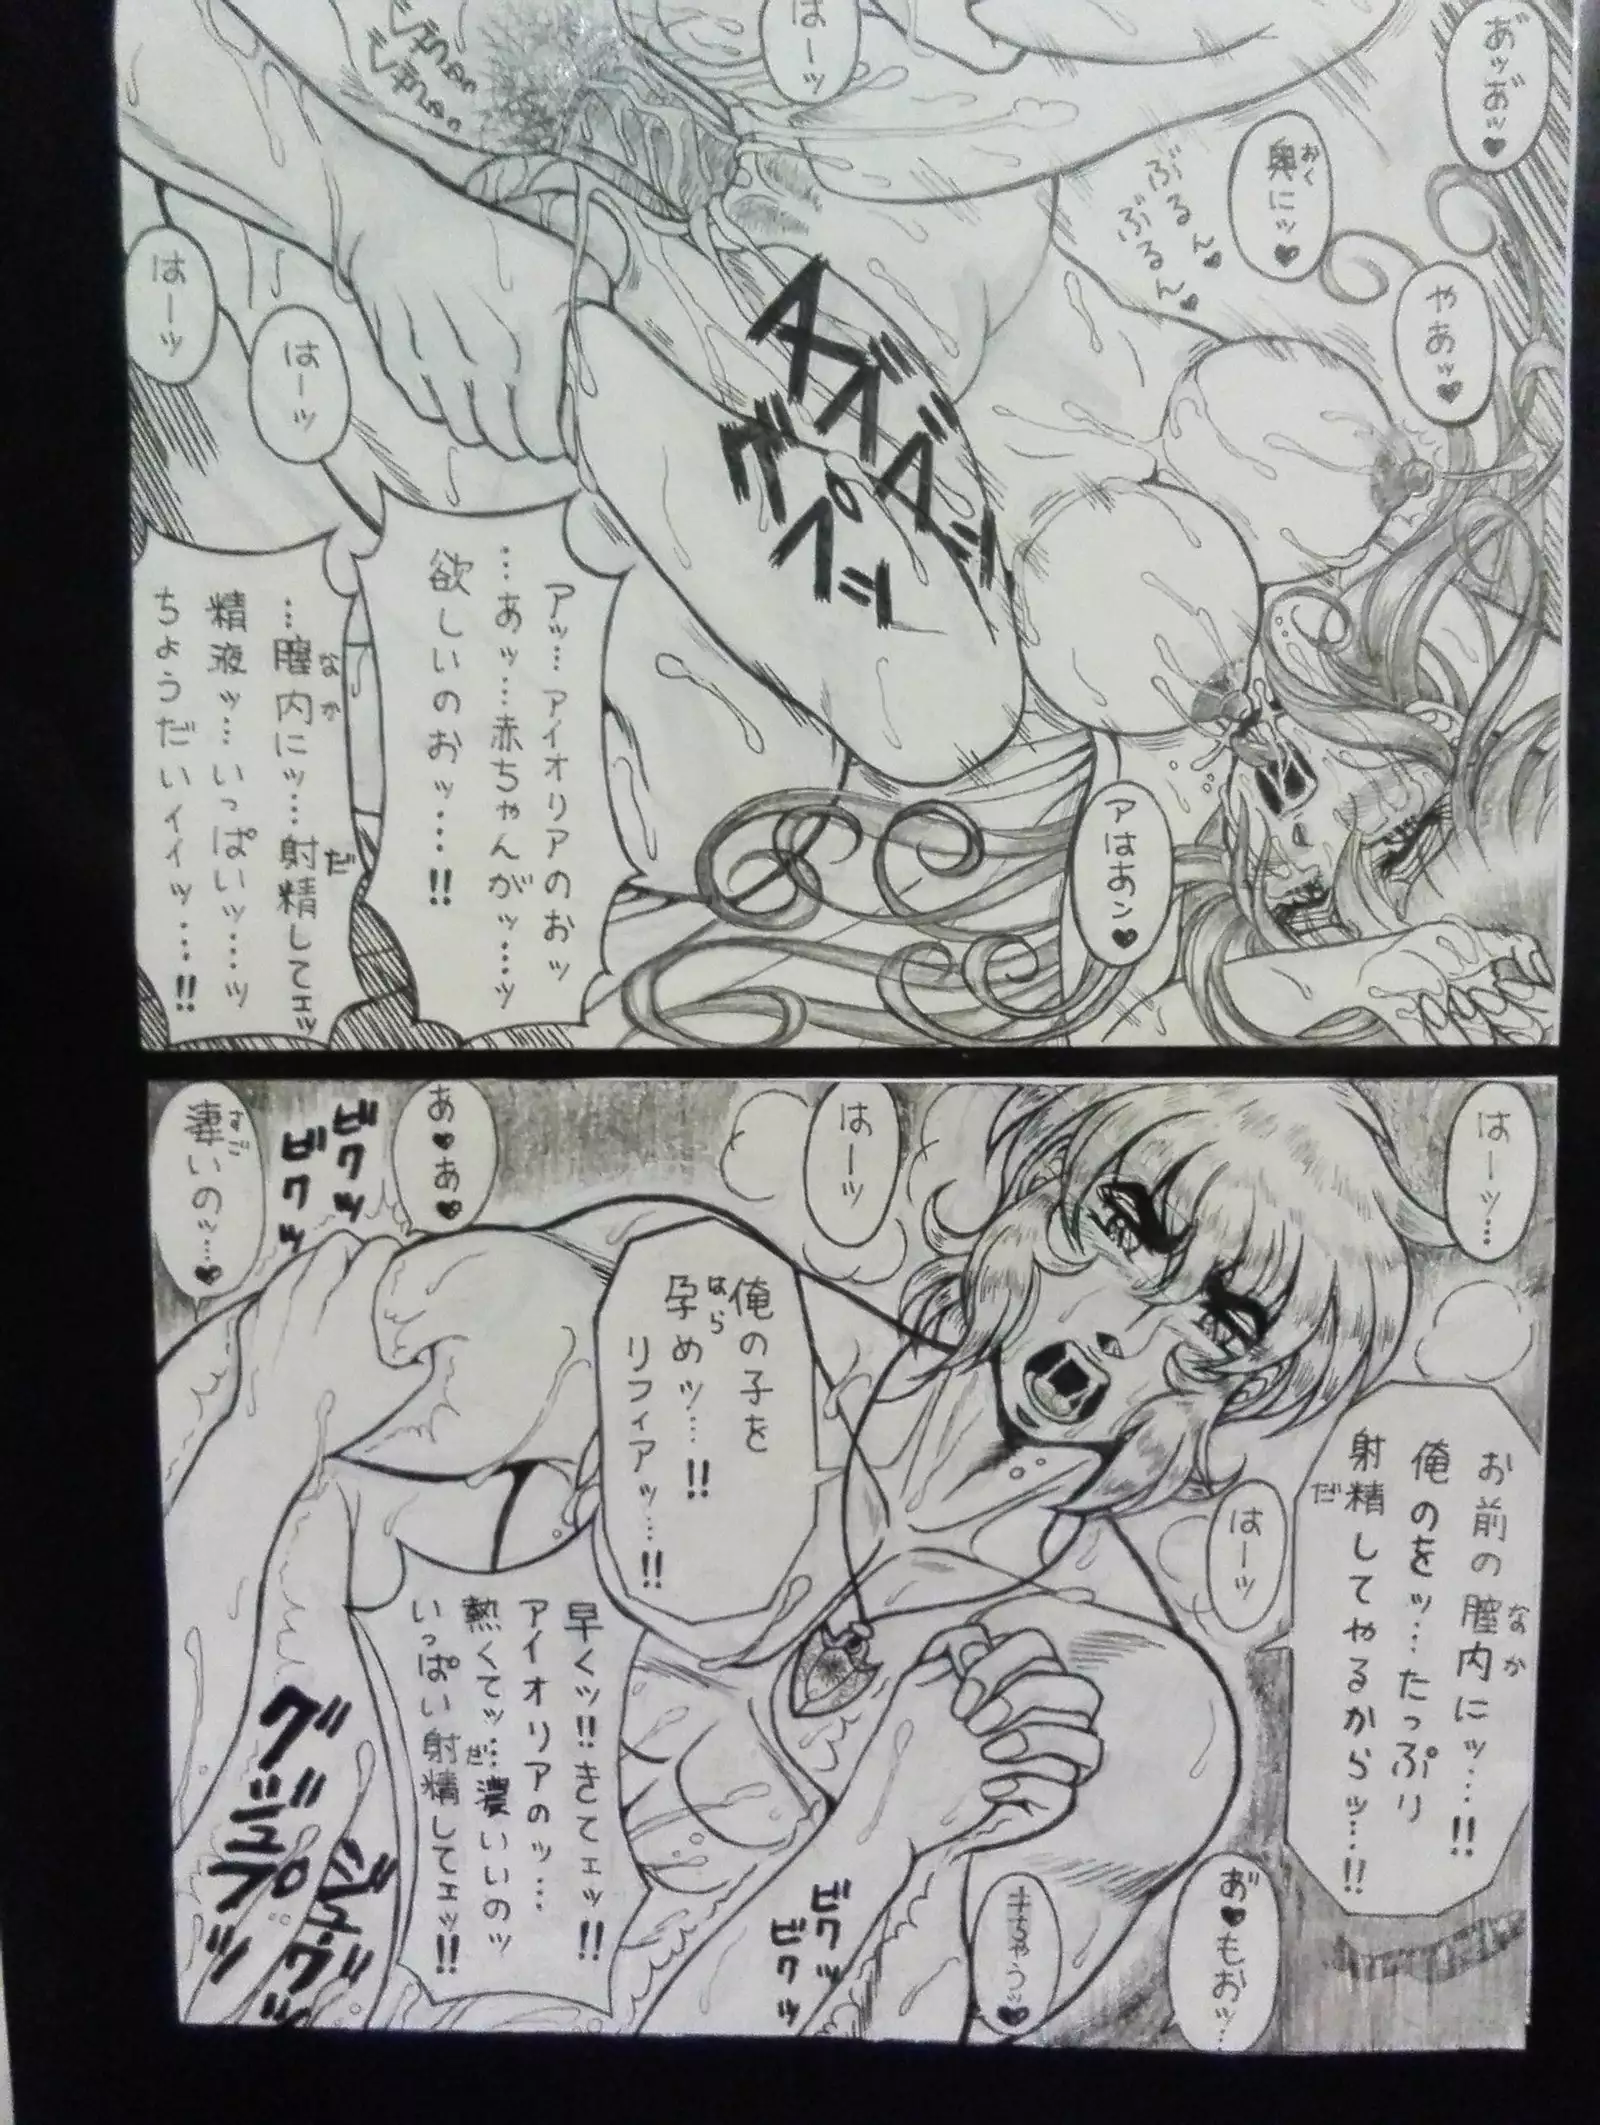 あ゛ッお゛ッ♥
奥にッ♥
おく
やあッ♥
ぶるん♥
ぶるん♥
はーッ
はーッ
はーッ
ズズッ
グプッ
アはあン♥
アッ…アイオリアのおッ
…あッ…赤ちゃんがッ…ッ
欲しいのおッ…!!
…膣内にッ…射精してェッ
なか
だ
精液ッ…いっぱいッ…ッ
ちょうだいィィッ…!!
はーッ…
はーッ
はーッ
お前の膣内にッ…!!
なか
俺のをッ…たっぷり
射精してやるからッ…!!
だ
俺の子を
孕めッ…!!
はら
リフィアッ…!!
あ♥あ♥
凄いのッ…♥
すご
ビクッ
ビクッ
早くッ!!きてェッ!!
アイオリアのッ…
熱くてッ…濃いいのッ
いっぱい射精してェッ!!
だ
あ゛♥もおッ…
ビクッ
ビクッ
グジュプッ
ジュグッ